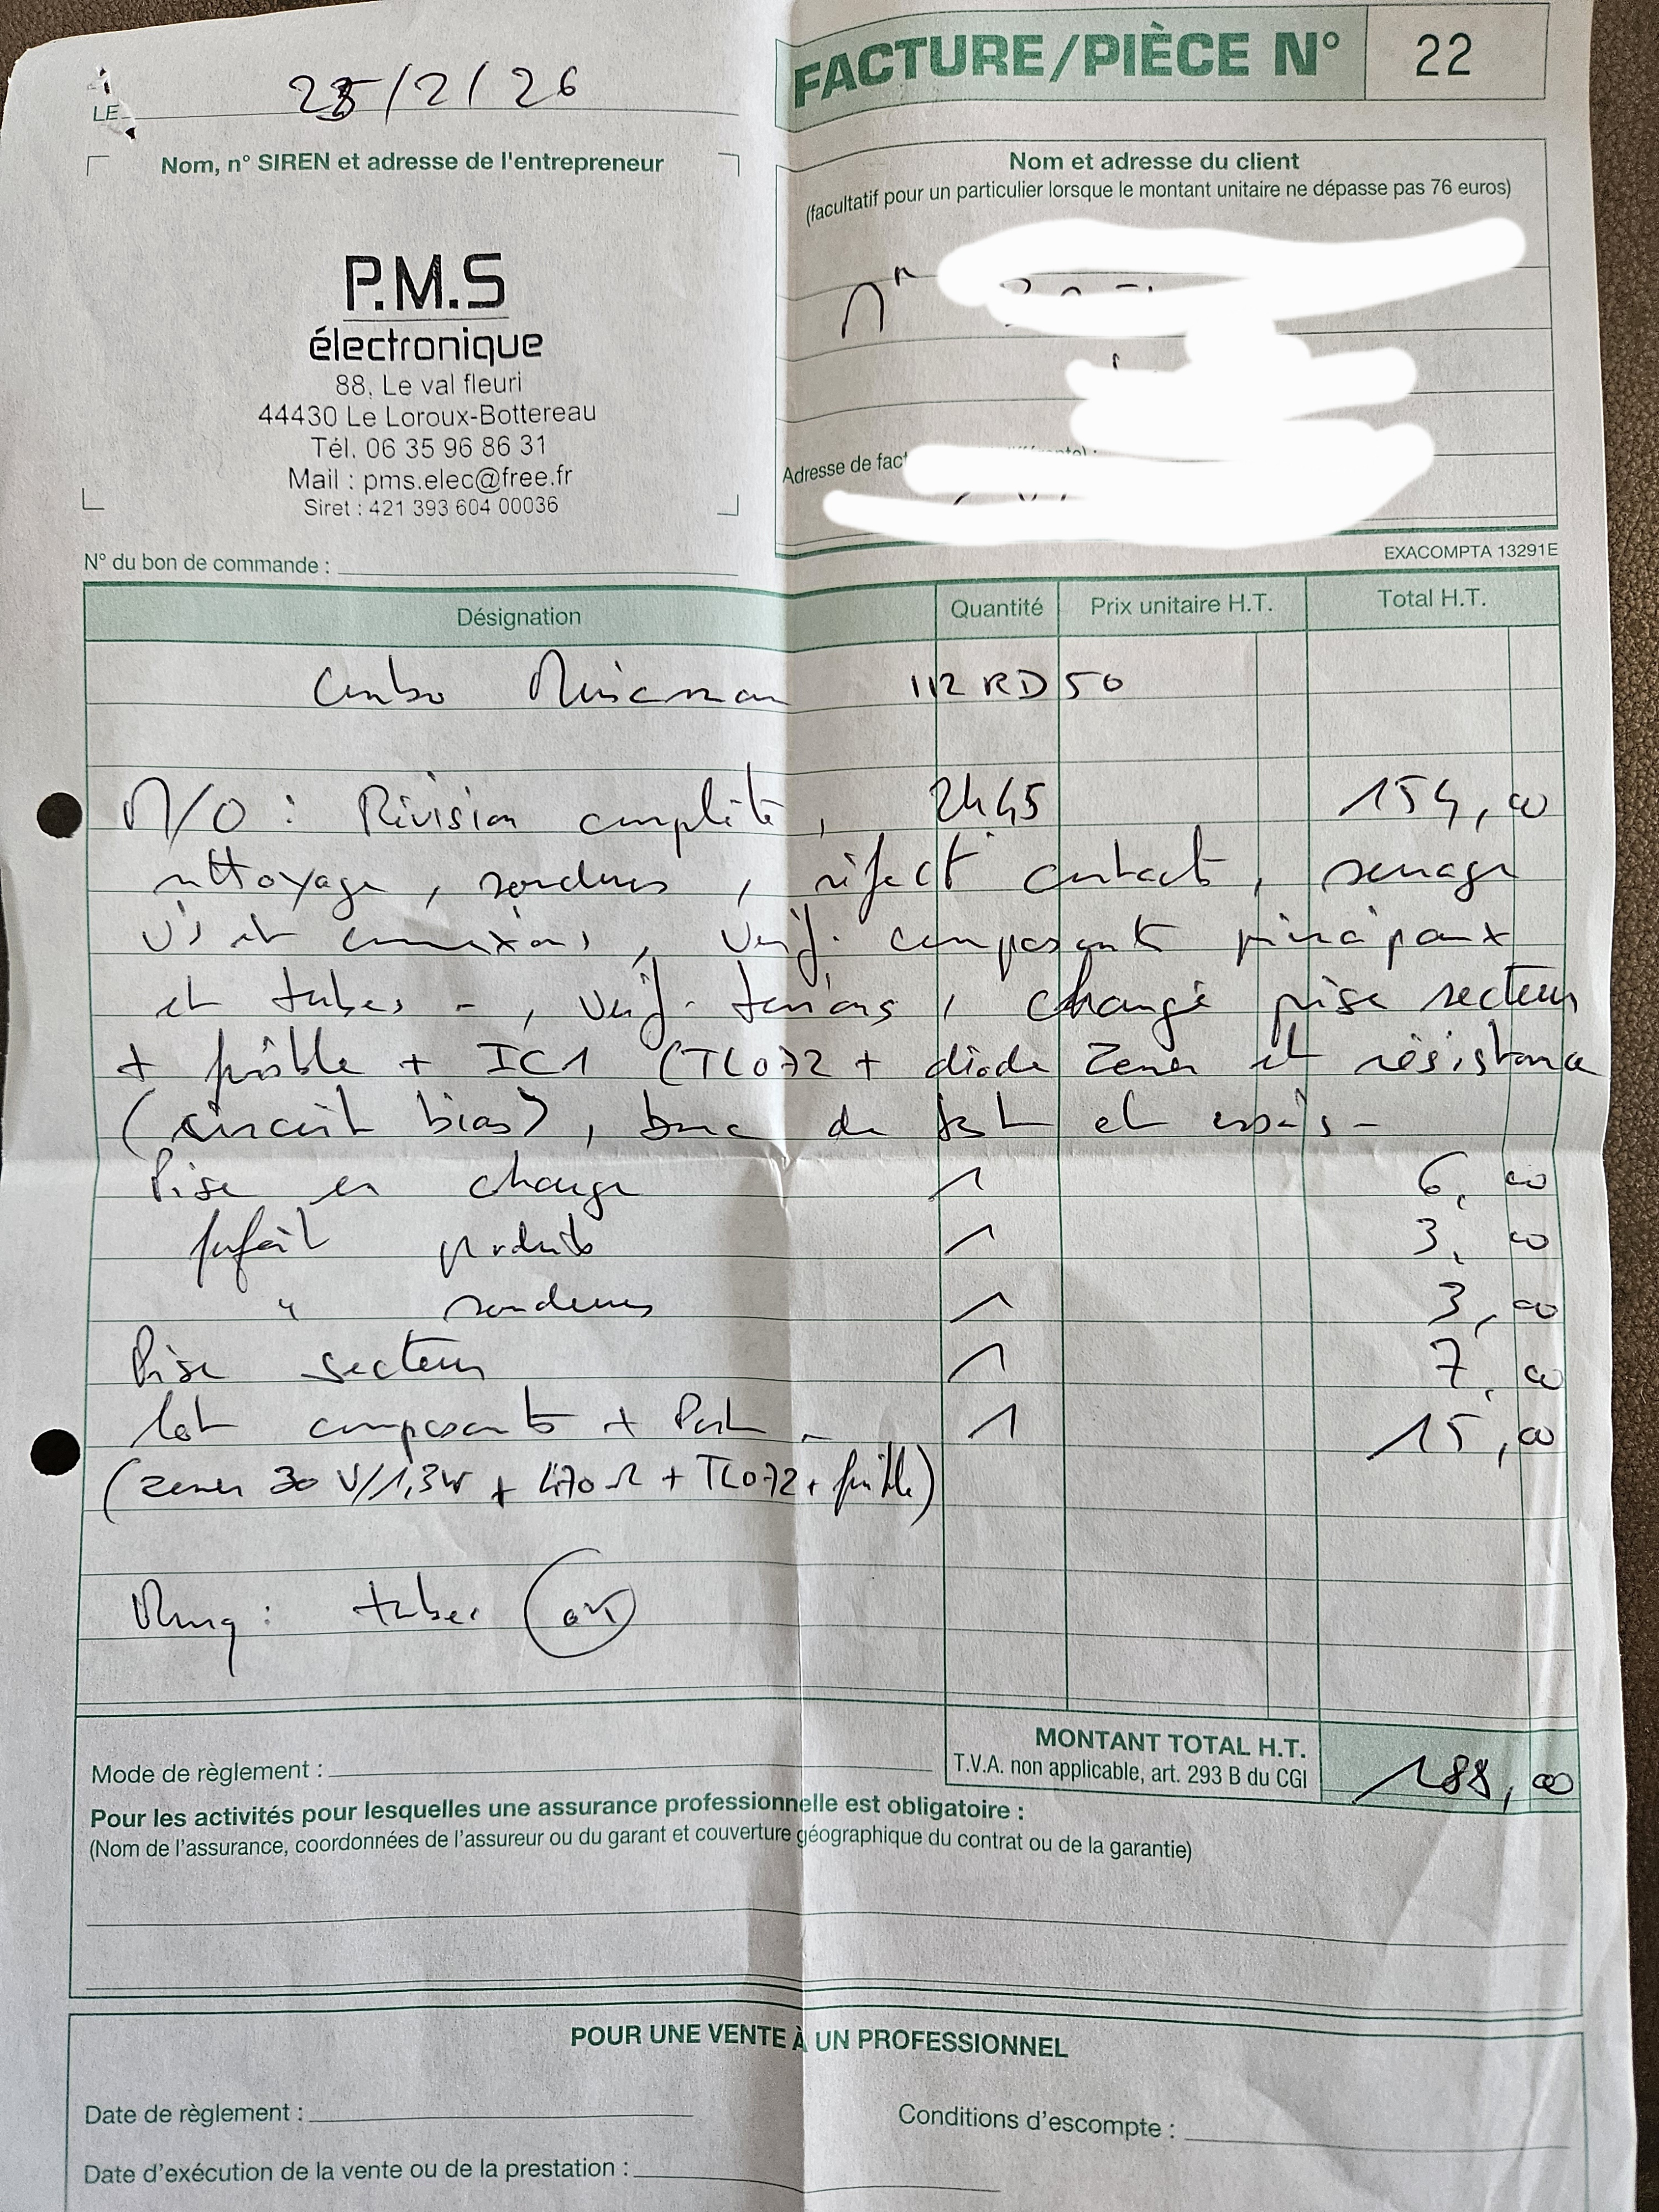 FACTURE/PIÈCE N° 22
LE 25/2/26
Nom, n° SIREN et adresse de l'entrepreneur
P.M.S
électronique
88, Le val fleuri
44430 Le Loroux-Bottereau
Tél. 06 35 96 86 31
Mail : pms.elec@free.fr
Siret : 421 393 604 00036
Nom et adresse du client
(facultatif pour un particulier lorsque le montant unitaire ne dépasse pas 76 euros)
Mr
Adresse de fact
N° du bon de commande :
EXACOMPTA 13291E
Désignation Quantité Prix unitaire H.T. Total H.T.
Combo Musicman 112 RD 50
M/O : Révision complète, 2h45 154,00
nettoyage, soudures, réfect contacts, serrage
vis et connexions, vérif. composants principaux
et tubes -, vérif. tensions, changé prise secteur
+ fusible + IC1 (TL072 + diode Zener et résistance
(circuit bias), banc de test et essais -
Prise en charge 1 6,00
forfait produits 1 3,00
" soudures 1 3,00
Prise secteur 1 7,00
lot composants + Port - 1 15,00
(zener 30 V/1,3W + 470 Ω + TL072 + fusible)
Rmq : tubes OK
MONTANT TOTAL H.T. 188,00
T.V.A. non applicable, art. 293 B du CGI
Mode de règlement :
Pour les activités pour lesquelles une assurance professionnelle est obligatoire :
(Nom de l'assurance, coordonnées de l'assureur ou du garant et couverture géographique du contrat ou de la garantie)
POUR UNE VENTE À UN PROFESSIONNEL
Date de règlement :
Conditions d'escompte :
Date d'exécution de la vente ou de la prestation :